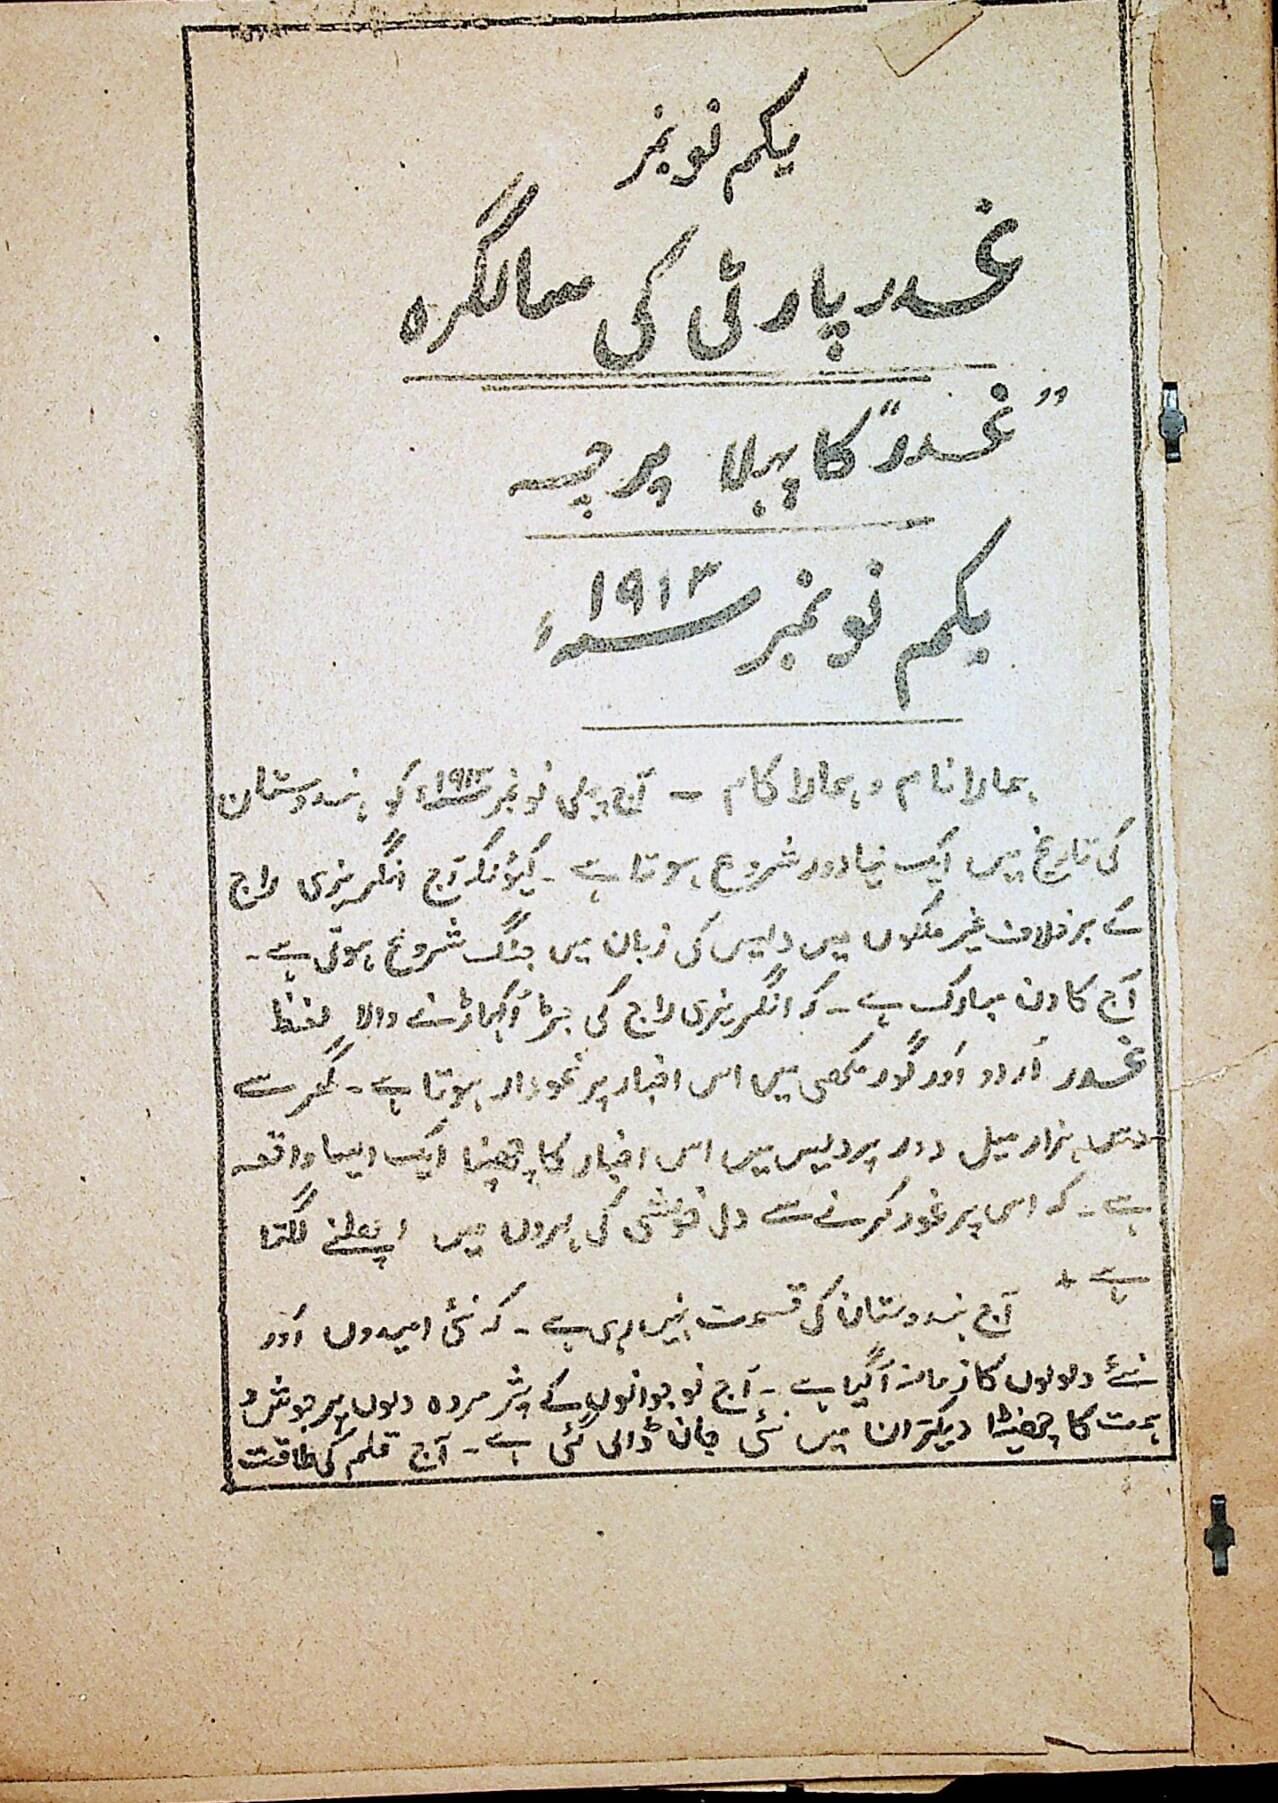 یکم نومبر
غدر پارٹی کی سالگرہ
”غدر“ کا پہلا پرچہ
یکم نومبر ۱۹۱۳ء
ہمارا نام و ہمارا کام – آج پہلی نومبر ۱۹۱۳ء کو ہندوستان
کی تاریخ میں ایک نیا دور شروع ہوتا ہے ۔ کیونکہ آج انگریزی راج
کے برخلاف غیر ملکوں میں دیس کی زبان میں جنگ شروع ہوتی ہے ۔
آج کا دن مبارک ہے ۔ کہ انگریزی راج کی جڑ اُکھاڑنے والا لفظ
غدر اُردو اَور گورمکھی میں اس اخبار پر نمودار ہوتا ہے ۔ گھر سے
دس ہزار میل دور پردیس میں اس اخبار کا چھپنا ایک ایسا واقعہ
ہے ۔ کہ اس پر غور کرنے سے دل خوشی کی لہروں میں اچھلنے لگتا
ہے +
آج ہندوستان کی قسمت پھر رہی ہے ۔ کہ نئی امیدوں اَور
نئے ولولوں کا زمانہ آگیا ہے ۔ آج نوجوانوں کے پژمردہ دلوں پر جوش و
ہمت کا چھینٹا دیکر ان میں نئی جان ڈالی گئی ہے ۔ آج قلم کی طاقت